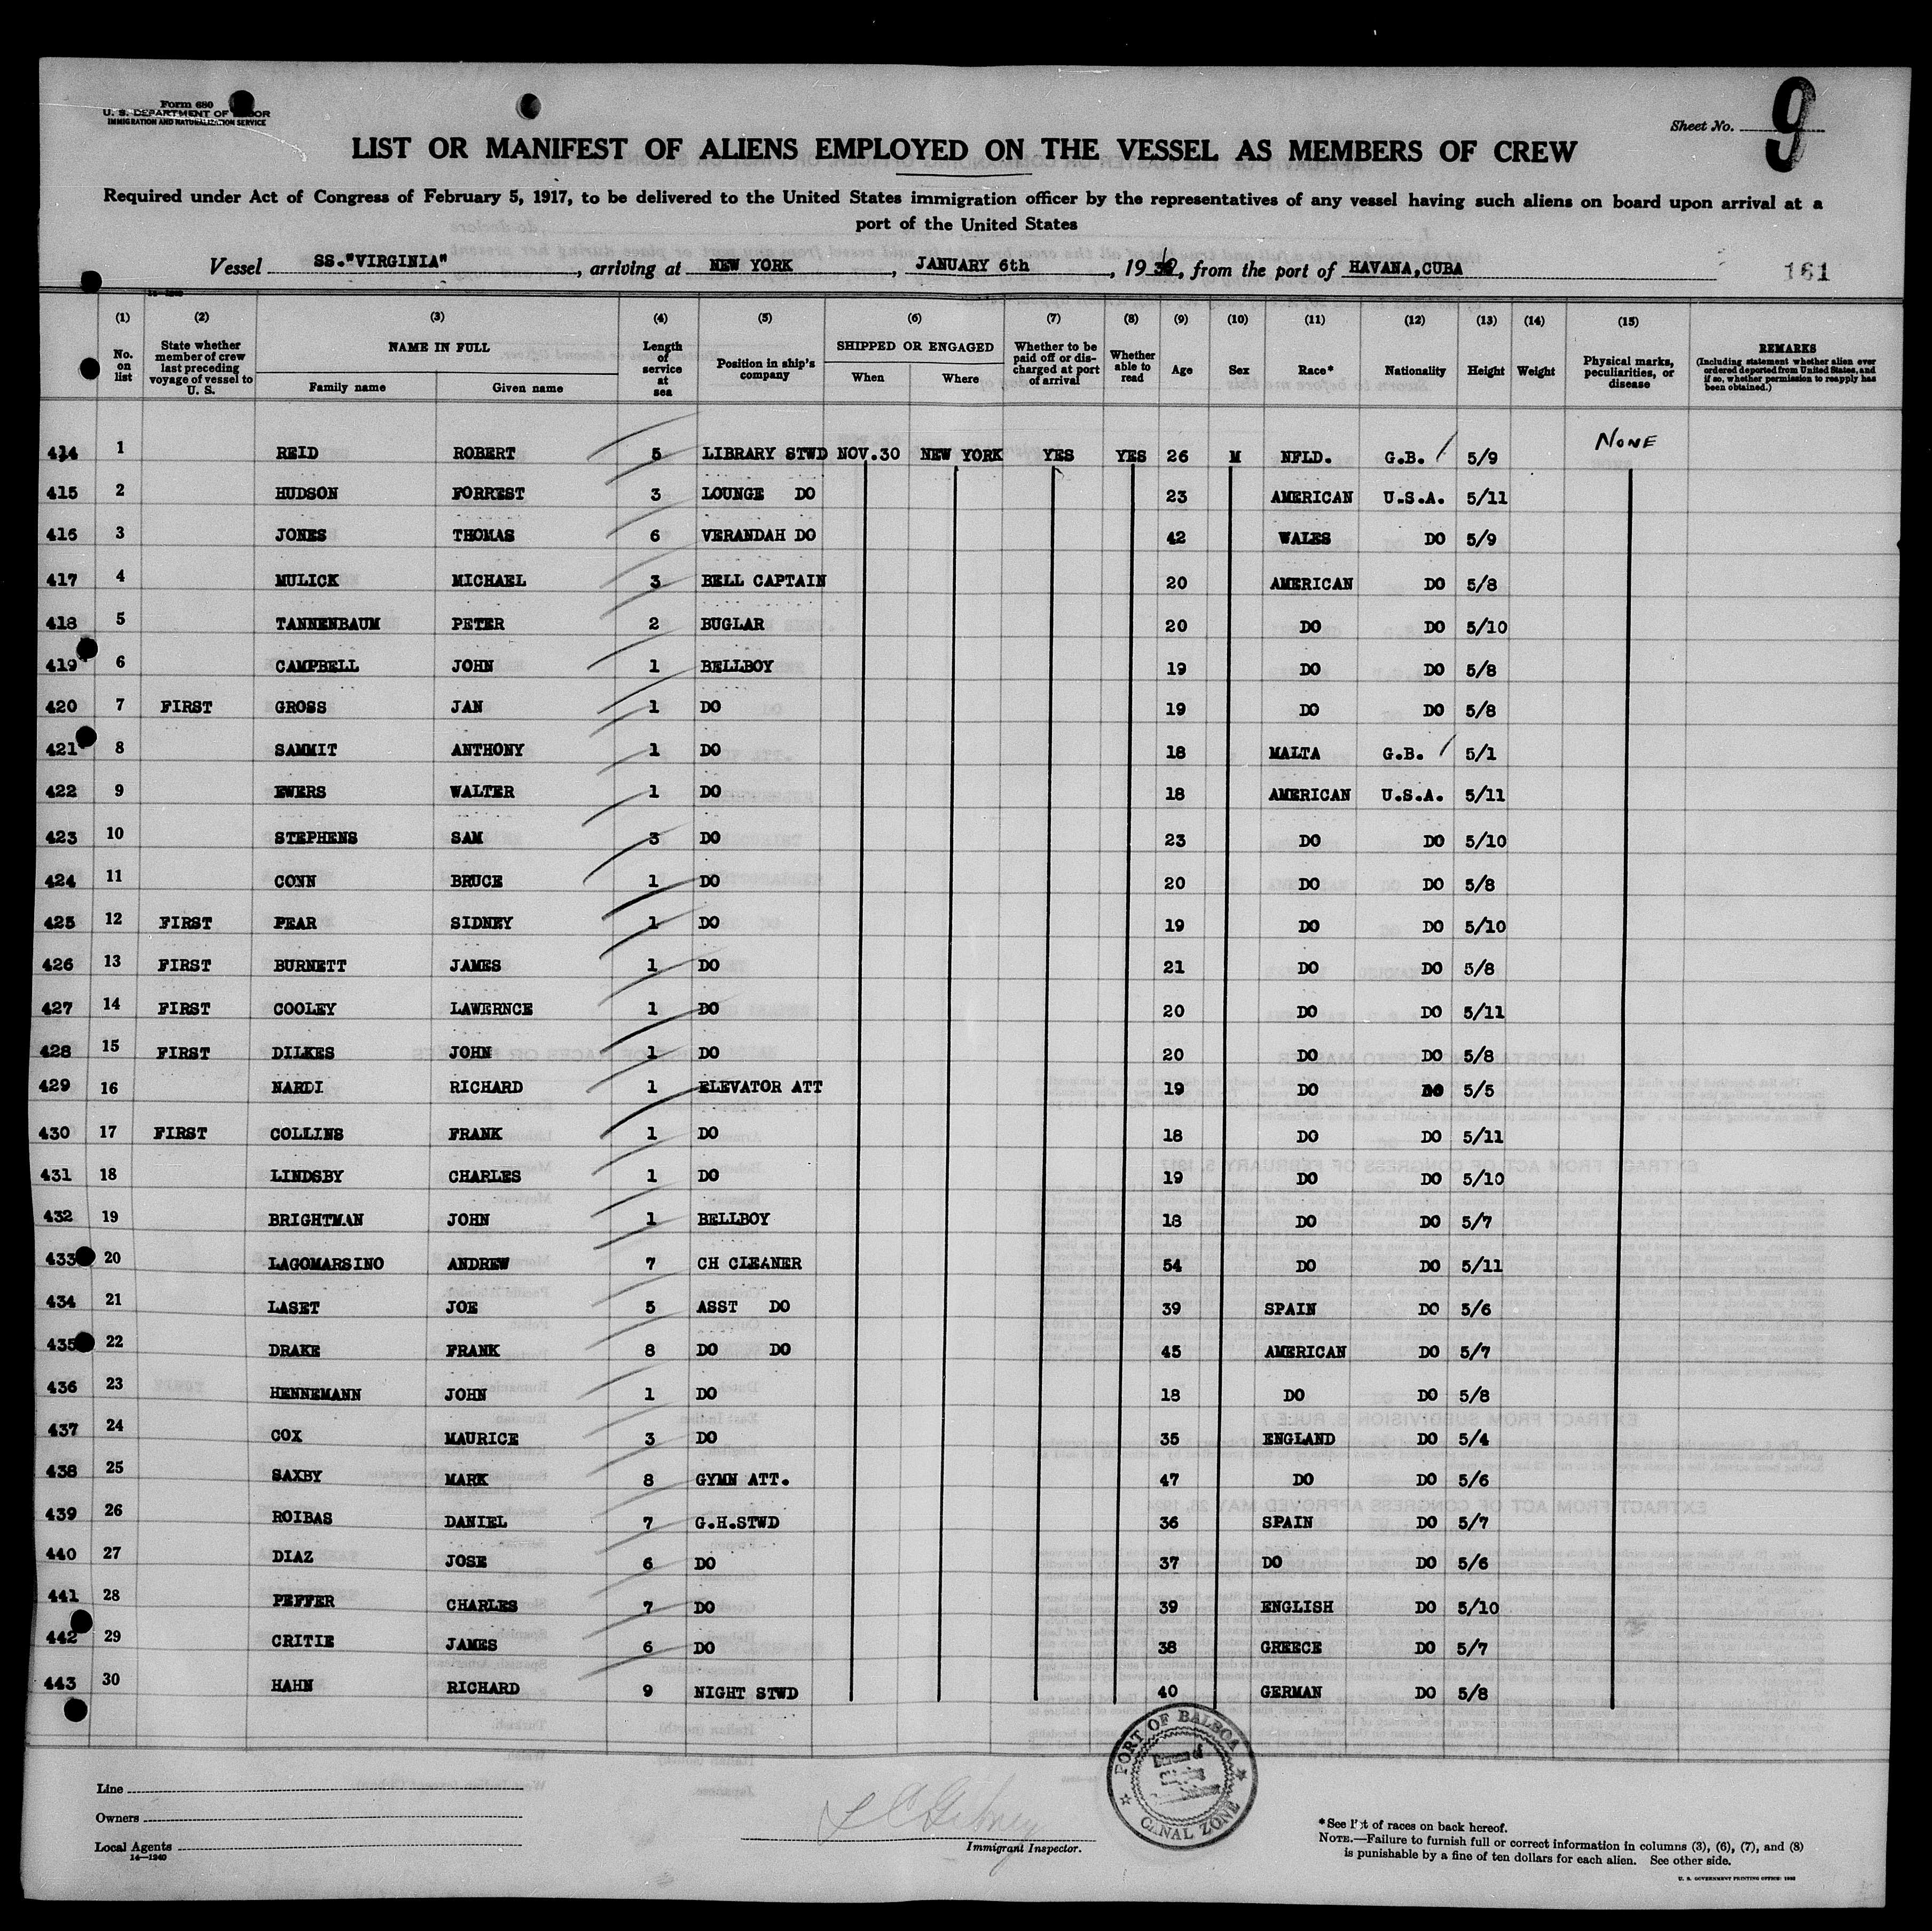 Form 680
U. S. DEPARTMENT OF LABOR
IMMIGRATION AND NATURALIZATION SERVICE
Sheet No. 9
LIST OR MANIFEST OF ALIENS EMPLOYED ON THE VESSEL AS MEMBERS OF CREW
Required under Act of Congress of February 5, 1917, to be delivered to the United States immigration officer by the representatives of any vessel having such aliens on board upon arrival at a
port of the United States
Vessel SS."VIRGINIA", arriving at NEW YORK, JANUARY 6th, 19, from the port of HAVANA,CUBA 161
(1) (2) (3) (4) (5) (6) (7) (8) (9) (10) (11) (12) (13) (14) (15)
No. on list State whether member of crew last preceding voyage of vessel to U. S. NAME IN FULL Family name Given name Length of service at sea Position in ship's company SHIPPED OR ENGAGED When Where Whether to be paid off or discharged at port of arrival Whether able to read Age Sex Race* Nationality Height Weight Physical marks, peculiarities, or disease REMARKS (Including statement whether alien ever ordered deported from United States, and if so, whether permission to reapply has been obtained.)
414 1 REID ROBERT 5 LIBRARY STWD NOV.30 NEW YORK YES YES 26 M NFLD. G.B. 5/9 NONE
415 2 HUDSON FORREST 3 LOUNGE DO 23 AMERICAN U.S.A. 5/11
416 3 JONES THOMAS 6 VERANDAH DO 42 WALES DO 5/9
417 4 MULICK MICHAEL 3 BELL CAPTAIN 20 AMERICAN DO 5/8
418 5 TANNENBAUM PETER 2 BUGLAR 20 DO DO 5/10
419 6 CAMPBELL JOHN 1 BELLBOY 19 DO DO 5/8
420 7 FIRST GROSS JAN 1 DO 19 DO DO 5/8
421 8 SAMMIT ANTHONY 1 DO 18 MALTA G.B. 5/1
422 9 EWERS WALTER 1 DO 18 AMERICAN U.S.A. 5/11
423 10 STEPHENS SAM 3 DO 23 DO DO 5/10
424 11 CONN BRUCE 1 DO 20 DO DO 5/8
425 12 FIRST PEAR SIDNEY 1 DO 19 DO DO 5/10
426 13 FIRST BURNETT JAMES 1 DO 21 DO DO 5/8
427 14 FIRST COOLEY LAWERNCE 1 DO 20 DO DO 5/11
428 15 FIRST DILKES JOHN 1 DO 20 DO DO 5/8
429 16 NARDI RICHARD 1 ELEVATOR ATT 19 DO DO 5/5
430 17 FIRST COLLINS FRANK 1 DO 18 DO DO 5/11
431 18 LINDSBY CHARLES 1 DO 19 DO DO 5/10
432 19 BRIGHTMAN JOHN 1 BELLBOY 18 DO DO 5/7
433 20 LAGOMARSINO ANDREW 7 CH CLEANER 54 DO DO 5/11
434 21 LASET JOE 5 ASST DO 39 SPAIN DO 5/6
435 22 DRAKE FRANK 8 DO DO 45 AMERICAN DO 5/7
436 23 HENNEMANN JOHN 1 DO 18 DO DO 5/8
437 24 COX MAURICE 3 DO 35 ENGLAND DO 5/4
438 25 SAXBY MARK 8 GYMN ATT. 47 DO DO 5/6
439 26 ROIBAS DANIEL 7 G.H.STWD 36 SPAIN DO 5/7
440 27 DIAZ JOSE 6 DO 37 DO DO 5/6
441 28 PEFFER CHARLES 7 DO 39 ENGLISH DO 5/10
442 29 CRITIE JAMES 6 DO 38 GREECE DO 5/7
443 30 HAHN RICHARD 9 NIGHT STWD 40 GERMAN DO 5/8
PORT OF BALBOA
CANAL ZONE
Line
Owners
Local Agents
14—1240
Immigrant Inspector.
*See list of races on back hereof.
NOTE.—Failure to furnish full or correct information in columns (3), (6), (7), and (8)
is punishable by a fine of ten dollars for each alien. See other side.
U. S. GOVERNMENT PRINTING OFFICE: